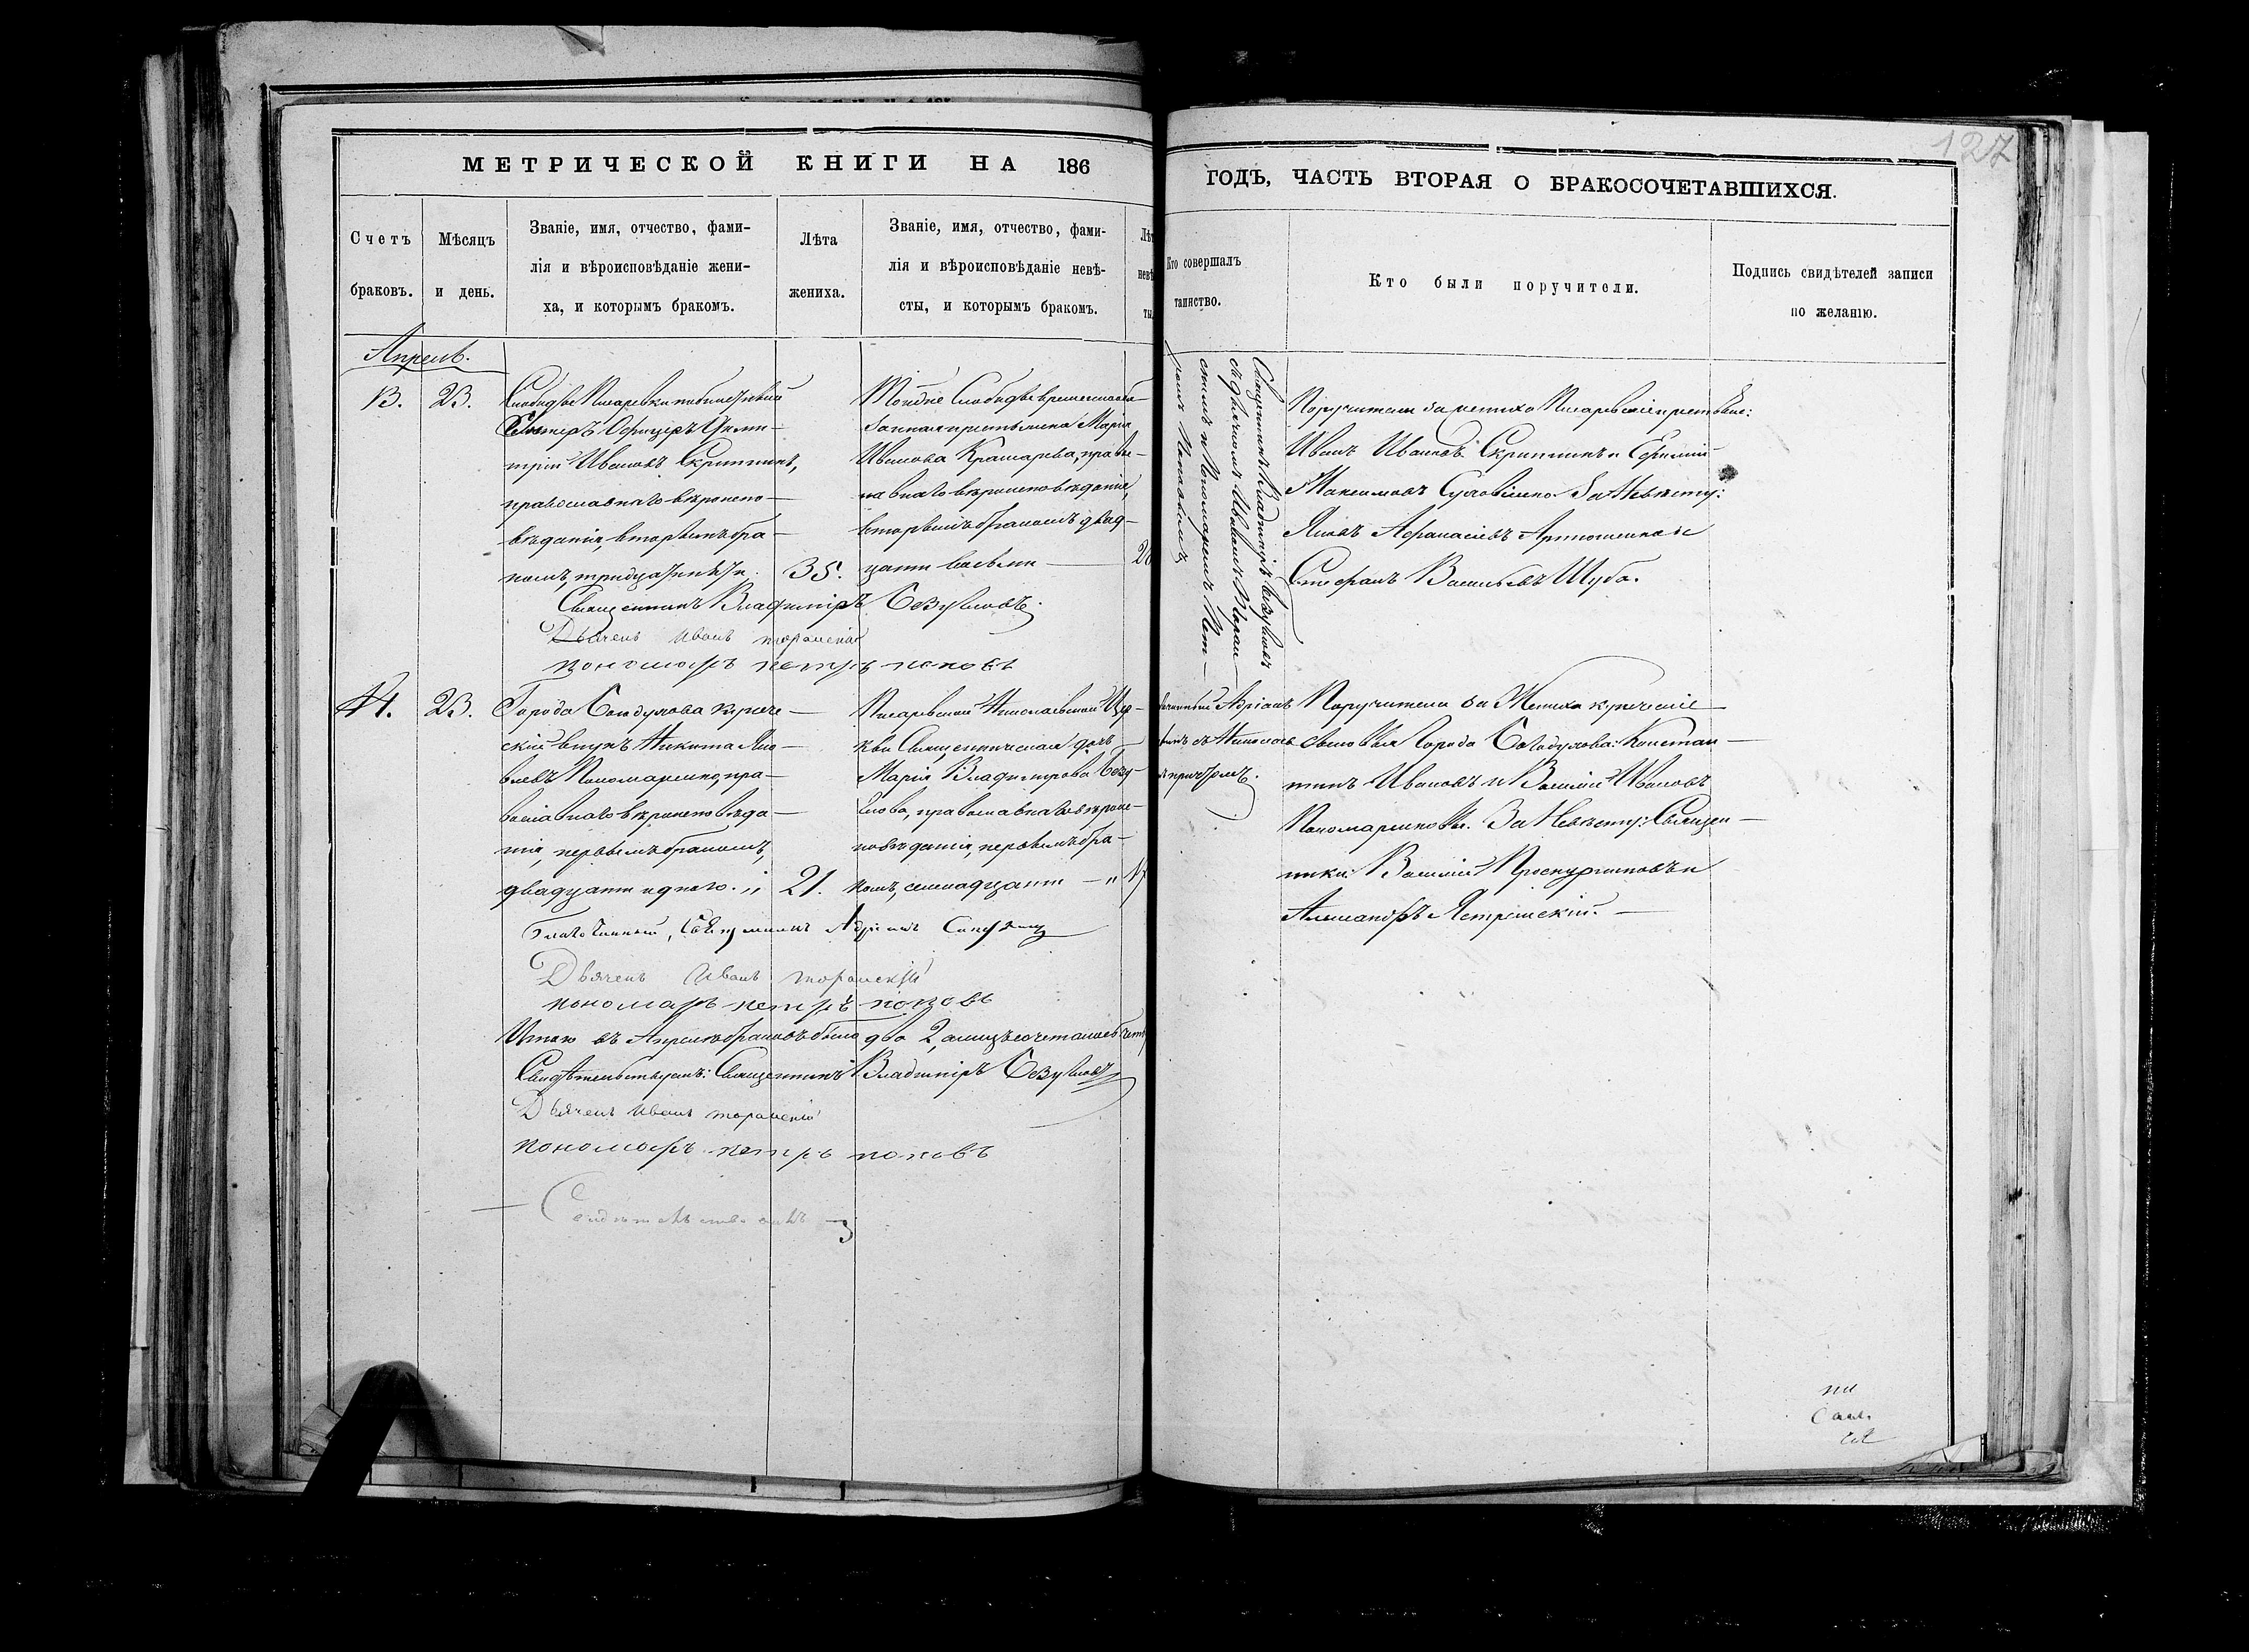 127
МЕТРИЧЕСКОЙ КНИГИ НА 186
ГОДЪ, ЧАСТЬ ВТОРАЯ О БРАКОСОЧЕТАВШИХСЯ.
Счетъ
браковъ.
Мѣсяцъ
и день.
Званіе, имя, отчество, фами-
лія и вѣроисповѣданіе жени-
ха, и которымъ бракомъ.
Лѣта
жениха.
Званіе, имя, отчество, фами-
лія и вѣроисповѣданіе невѣ-
сты, и которымъ бракомъ.
Лѣт
невѣ
ты.
Кто совершалъ
таинство.
Кто были поручители.
Подпись свидѣтелей записи
по желанію.
Апрель.
13.
23.
Слободы Писаревки
Офицеръ Дими-
трій Ивановъ Скрыпникъ,
православнаго вѣроиспо-
вѣданія, вторымъ бра-
комъ, тридцати пяти.
35.
Тойже Слободы временнообя-
занная крестьянка Марія
Иванова Крамарева, правос-
лавнаго вѣроисповѣданія,
вторымъ бракомъ двад-
цати восьми
28
Священникъ Владиміръ
съ дьячкомъ Иваномъ Торан-
скимъ и Пономаремъ Пет-
ромъ Поповымъ
Поручители за жениха Писаревскіе крестьяне:
Иванъ Ивановъ Скрыпникъ и
Максимовъ За Невѣсту:
Яковъ Афанасіевъ Артюшенко и
Стефанъ Васильевъ Шуба.
Священникъ Владиміръ
Дьячекъ Иванъ Торанскій
пономарь петръ поповъ
14.
23.
Города Богодухова купече-
скій внукъ Никита Яко-
влевъ Пономаренко, пра-
вославнаго вѣроисповѣда-
нія, первымъ бракомъ,
двадцати одного.
21.
Писаревской Николаевской Цер-
кви Священническая дочь
Марія Владимірова
православнаго вѣроис-
повѣданія, первымъ бра-
комъ, семнадцати
17
Адріанъ
съ Николаев
причтомъ.
Поручители за Жениха купеческіе
сыновья города Богодухова: Констан-
тинъ Ивановъ и Василій Ивановъ
Пономаренковы. За Невѣсту: Священ-
ники Василій Проскурниковъ и
Александръ Ястремскій.
Благочинный, Священникъ Адріанъ
Дьячекъ Иванъ Торанскій
пономарь петръ поповъ
Итого въ Апрелѣ браковъ было два 2, а лицъ сочеталось чет
Свидѣтельствуемъ: Священникъ Владиміръ
Дьячекъ Иванъ Торанскій
пономарь петръ поповъ
Свидѣтельствовалъ